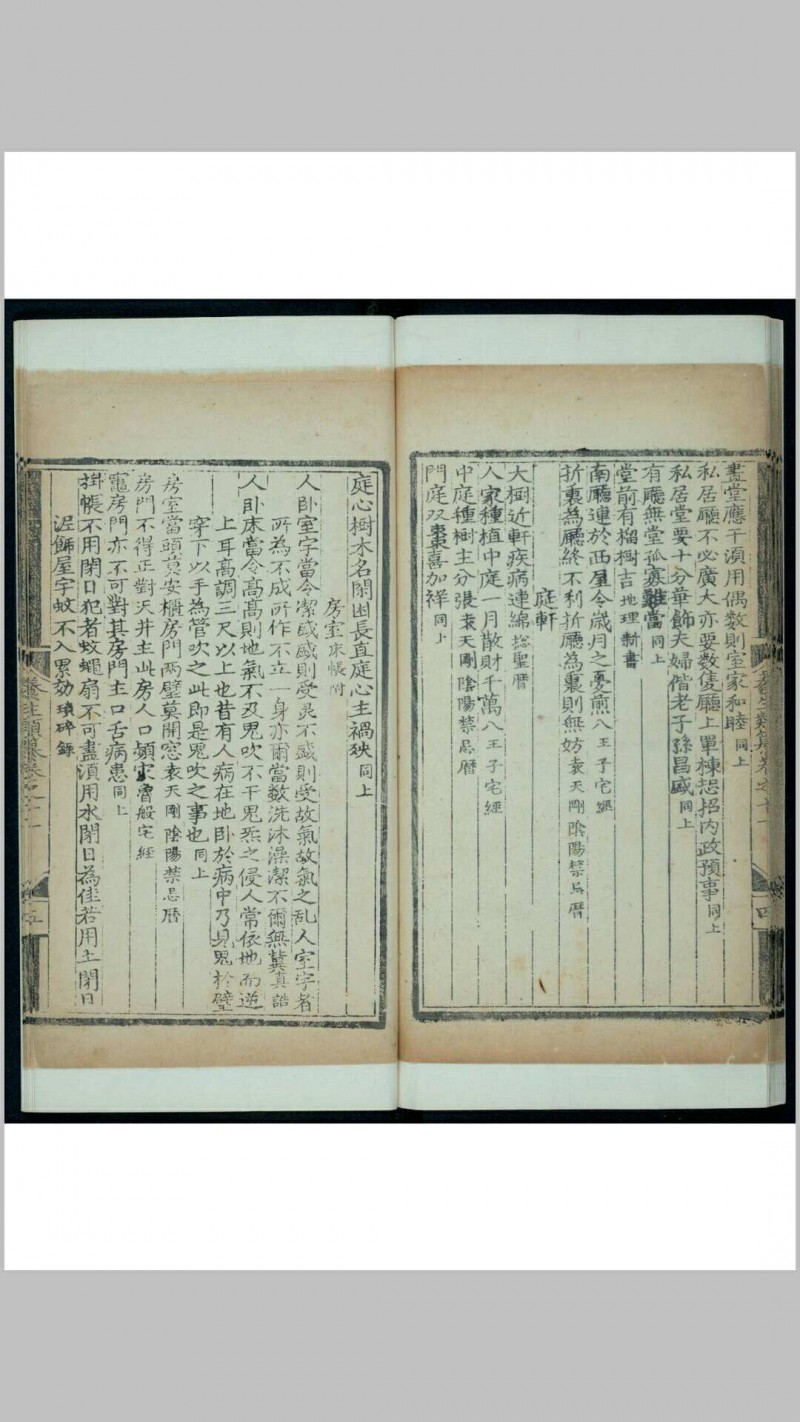 畫堂應干湏用偶数則室家和睦同上
私居廳不必廣大亦要数隻廳上單棟恐招内政預事同上
私居堂要十分華飾夫婦偕老子孫昌盛同上
有廳無堂孤寡難當同上
堂前有榴樹吉地理新書
南廳連於西屋令歲月之憂煎八王子宅經
折裏為廳終不利折廳為裏則無妨袁天剛陰陽禁忌曆
庭軒
大樹近軒疾病連綿総聖曆
人家種植中庭一月散財千萬八王子宅經
中庭種樹主分張袁天剛陰陽禁忌曆
門庭双棗喜加祥同上
養生類纂卷之十一
四
庭心樹木名閑困長直庭心主禍殃同上
房室床帳附
人卧室宇當令潔盛盛則受灵不盛則受故氣故氣之乱人室宇者
所為不成所作不立一身亦爾當数洗沐澡潔不爾無冀真誥
人卧床當令高高則地氣不及鬼吹不干鬼炁之侵人常依地而逆
上耳高調三尺以上也昔有人病在地卧於病中乃見鬼於壁
穿下以手為管吹之此即是鬼吹之事也同上
房室當頭莫安櫃房門兩壁莫開窓袁天剛陰陽禁忌曆
房門不得正對天井主此房人口頻灾魯般宅經
竈房門亦不可對其房門主口舌病患同上
掛帳不用閉日犯者蚊蠅扇不可盡湏用水閉日為佳若用土閉日
泥飾屋宇蚊不入累効瑣碎錄
養生類纂卷之十一
五